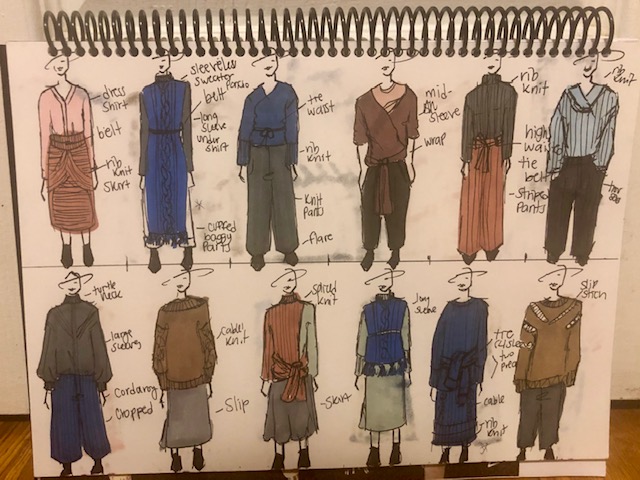 dress
shirt
belt
rib
knit
skirt
sleeveless
sweater
belt
long
sleeve
under
shirt
cuffed
baggy
pants
tie
waist
rib
knit
knit
pants
flare
mid-
sleeve
wrap
rib
knit
high
waist
tie
belt
striped
pants
rib
knit
turtle
neck
large
sleeves
corduroy
cropped
cable
knit
slip
knit
skirt
long
sleeve
tie
two
cable
rib
knit
slip
stitch